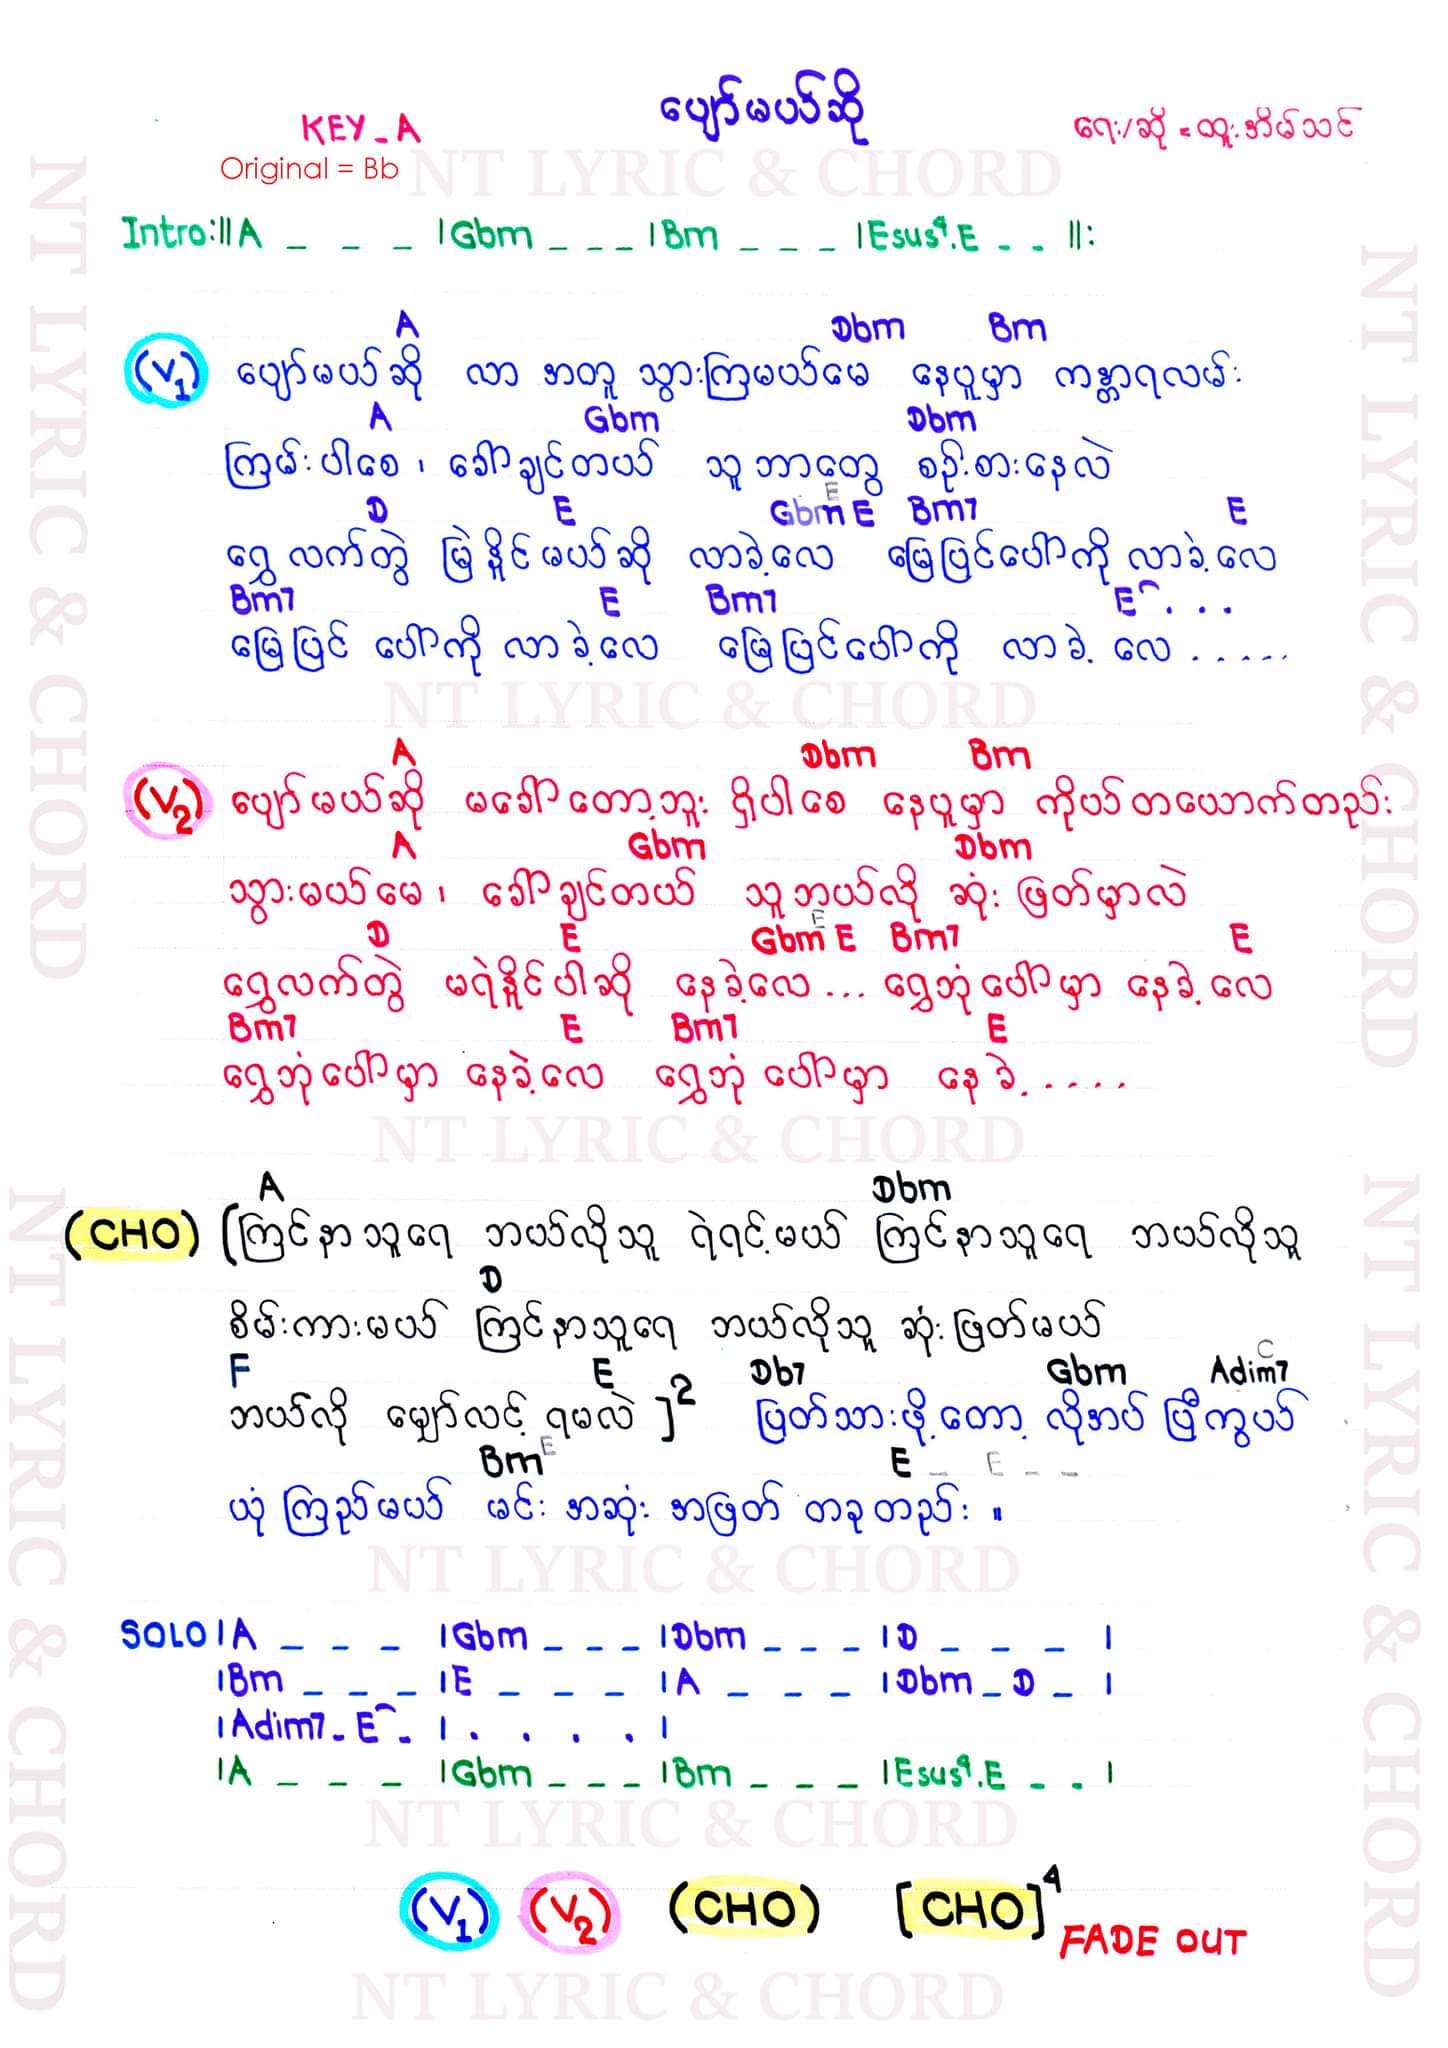 ပျော်မယ်ဆို
KEY_A
ရေး/ဆို = ထူးအိမ်သင်
Original = Bb
NT LYRIC & CHORD
Intro:||A _ _ _ |Gbm _ _ _ |Bm _ _ _ |Esus4.E _ _ ||:
A Dbm Bm
(V1) ပျော်မယ်ဆို လာ အတူ သွားကြမယ်မေ နေပူမှာ ကန္တာရလမ်း
A Gbm Dbm
ကြမ်းပါစေ၊ ခေါ်ချင်တယ် သူဘာတွေ စဉ်းစားနေလဲ
D E Gbm E E Bm7 E
ရွှေလက်တွဲ မြဲနိူင်မယ်ဆို လာခဲ့လေ မြေပြင်ပေါ်ကို လာခဲ့လေ
Bm7 E Bm7 E . . .
မြေပြင် ပေါ်ကို လာခဲ့လေ မြေပြင်ပေါ်ကို လာခဲ့ လေ . . . . .
NT LYRIC & CHORD
A Dbm Bm
(V2) ပျော်မယ်ဆို မခေါ်တော့ဘူး ရှိပါစေ နေပူမှာ ကိုယ်တယောက်တည်း
A Gbm Dbm
သွားမယ်မေ၊ ခေါ်ချင်တယ် သူဘယ်လို ဆုံးဖြတ်မှာလဲ
D E Gbm E E Bm7 E
ရွှေလက်တွဲ မရဲနိူင်ပါဆို နေခဲ့လေ... ရွှေဘုံပေါ်မှာ နေခဲ့လေ
Bm7 E Bm7 E
ရွှေဘုံပေါ်မှာ နေခဲ့လေ ရွှေဘုံ ပေါ်မှာ နေခဲ့ . . . . .
NT LYRIC & CHORD
A Dbm
(CHO) [ကြင်နာသူရေ ဘယ်လိုသူ ရဲရင့်မယ် ကြင်နာသူရေ ဘယ်လိုသူ
D
စိမ်းကားမယ် ကြင်နာသူရေ ဘယ်လိုသူ ဆုံးဖြတ်မယ်
F E Db7 Gbm Adim7 C
ဘယ်လို မျှော်လင့် ရမလဲ ]2 ပြတ်သားဖို့တော့ လိုအပ် ပြီကွယ်
Bm E E _ E _ _
ယုံ ကြည်မယ် မင်း အဆုံး အဖြတ် တခုတည်း ။
NT LYRIC & CHORD
SOLO |A _ _ _ |Gbm _ _ _ |Dbm _ _ _ |D _ _ _ |
|Bm _ _ _ |E _ _ _ |A _ _ _ |Dbm _ D _ |
|Adim7 _ E _ | . . . . |
|A _ _ _ |Gbm _ _ _ |Bm _ _ _ |Esus4.E _ _ |
NT LYRIC & CHORD
(V1) (V2) (CHO) [CHO]4
FADE OUT
NT LYRIC & CHORD
NT LYRIC & CHORD
NT LYRIC & CHORD
NT LYRIC & CHORD
NT LYRIC & CHORD